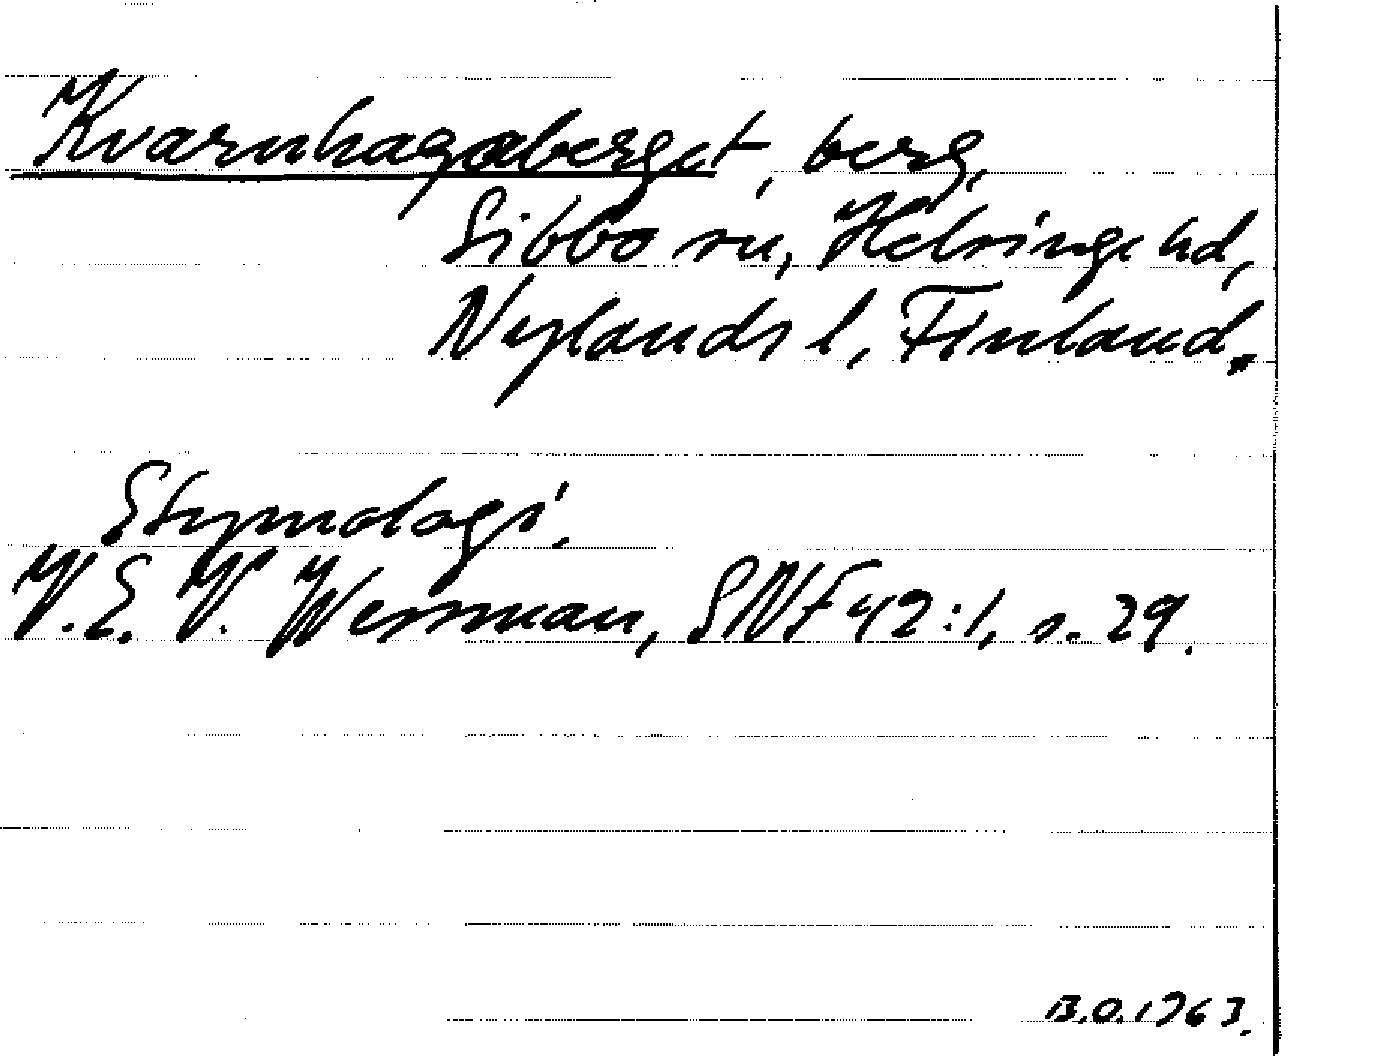 Kvarnhagaberget, berg,
Sibbo sn, Helsinge hd,
Nylands l, Finland.
Etymologi.
V. E. V. Wessman, SNF 42:1, s. 29.
B.O. 1963.